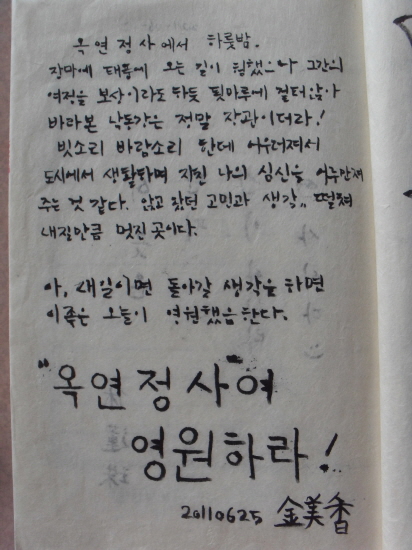 옥연정사에서 하룻밤.
장마에 태풍에 오는 길이 험했으나 그간의
여정을 보상이라도 하듯 툇마루에 걸터앉아
바라본 낙동강은 정말 장관이더라!
빗소리 바람소리 한데 어우러져서
도시에서 생활하며 지친 나의 심신을 어루만져
주는 것 같다. 안고 왔던 고민과 생각,, 떨쳐
내질만큼 멋진 곳이다.
아, 내일이면 돌아갈 생각을 하면
이 오늘이 영원했음 한다.
"옥연정사"여
영원하라!
20110625 金美香